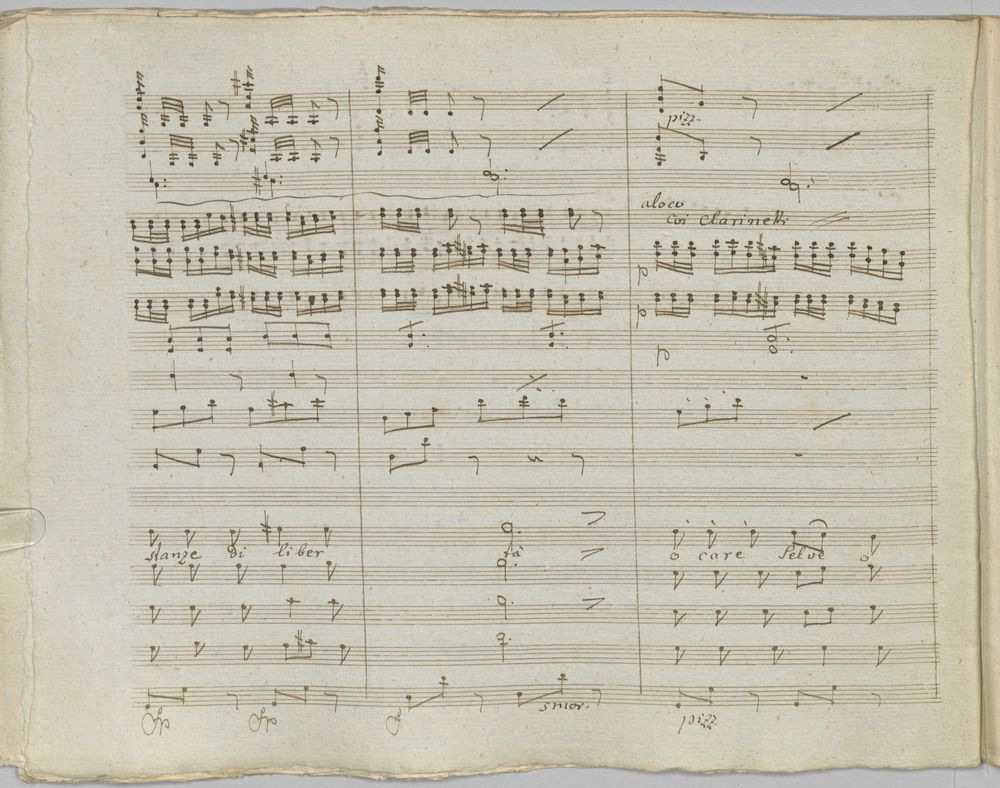 pizz.
aloco
coi clarinetti
p
p
p
stanze di liber tà o care selve o
smor.
fp fp f pizz